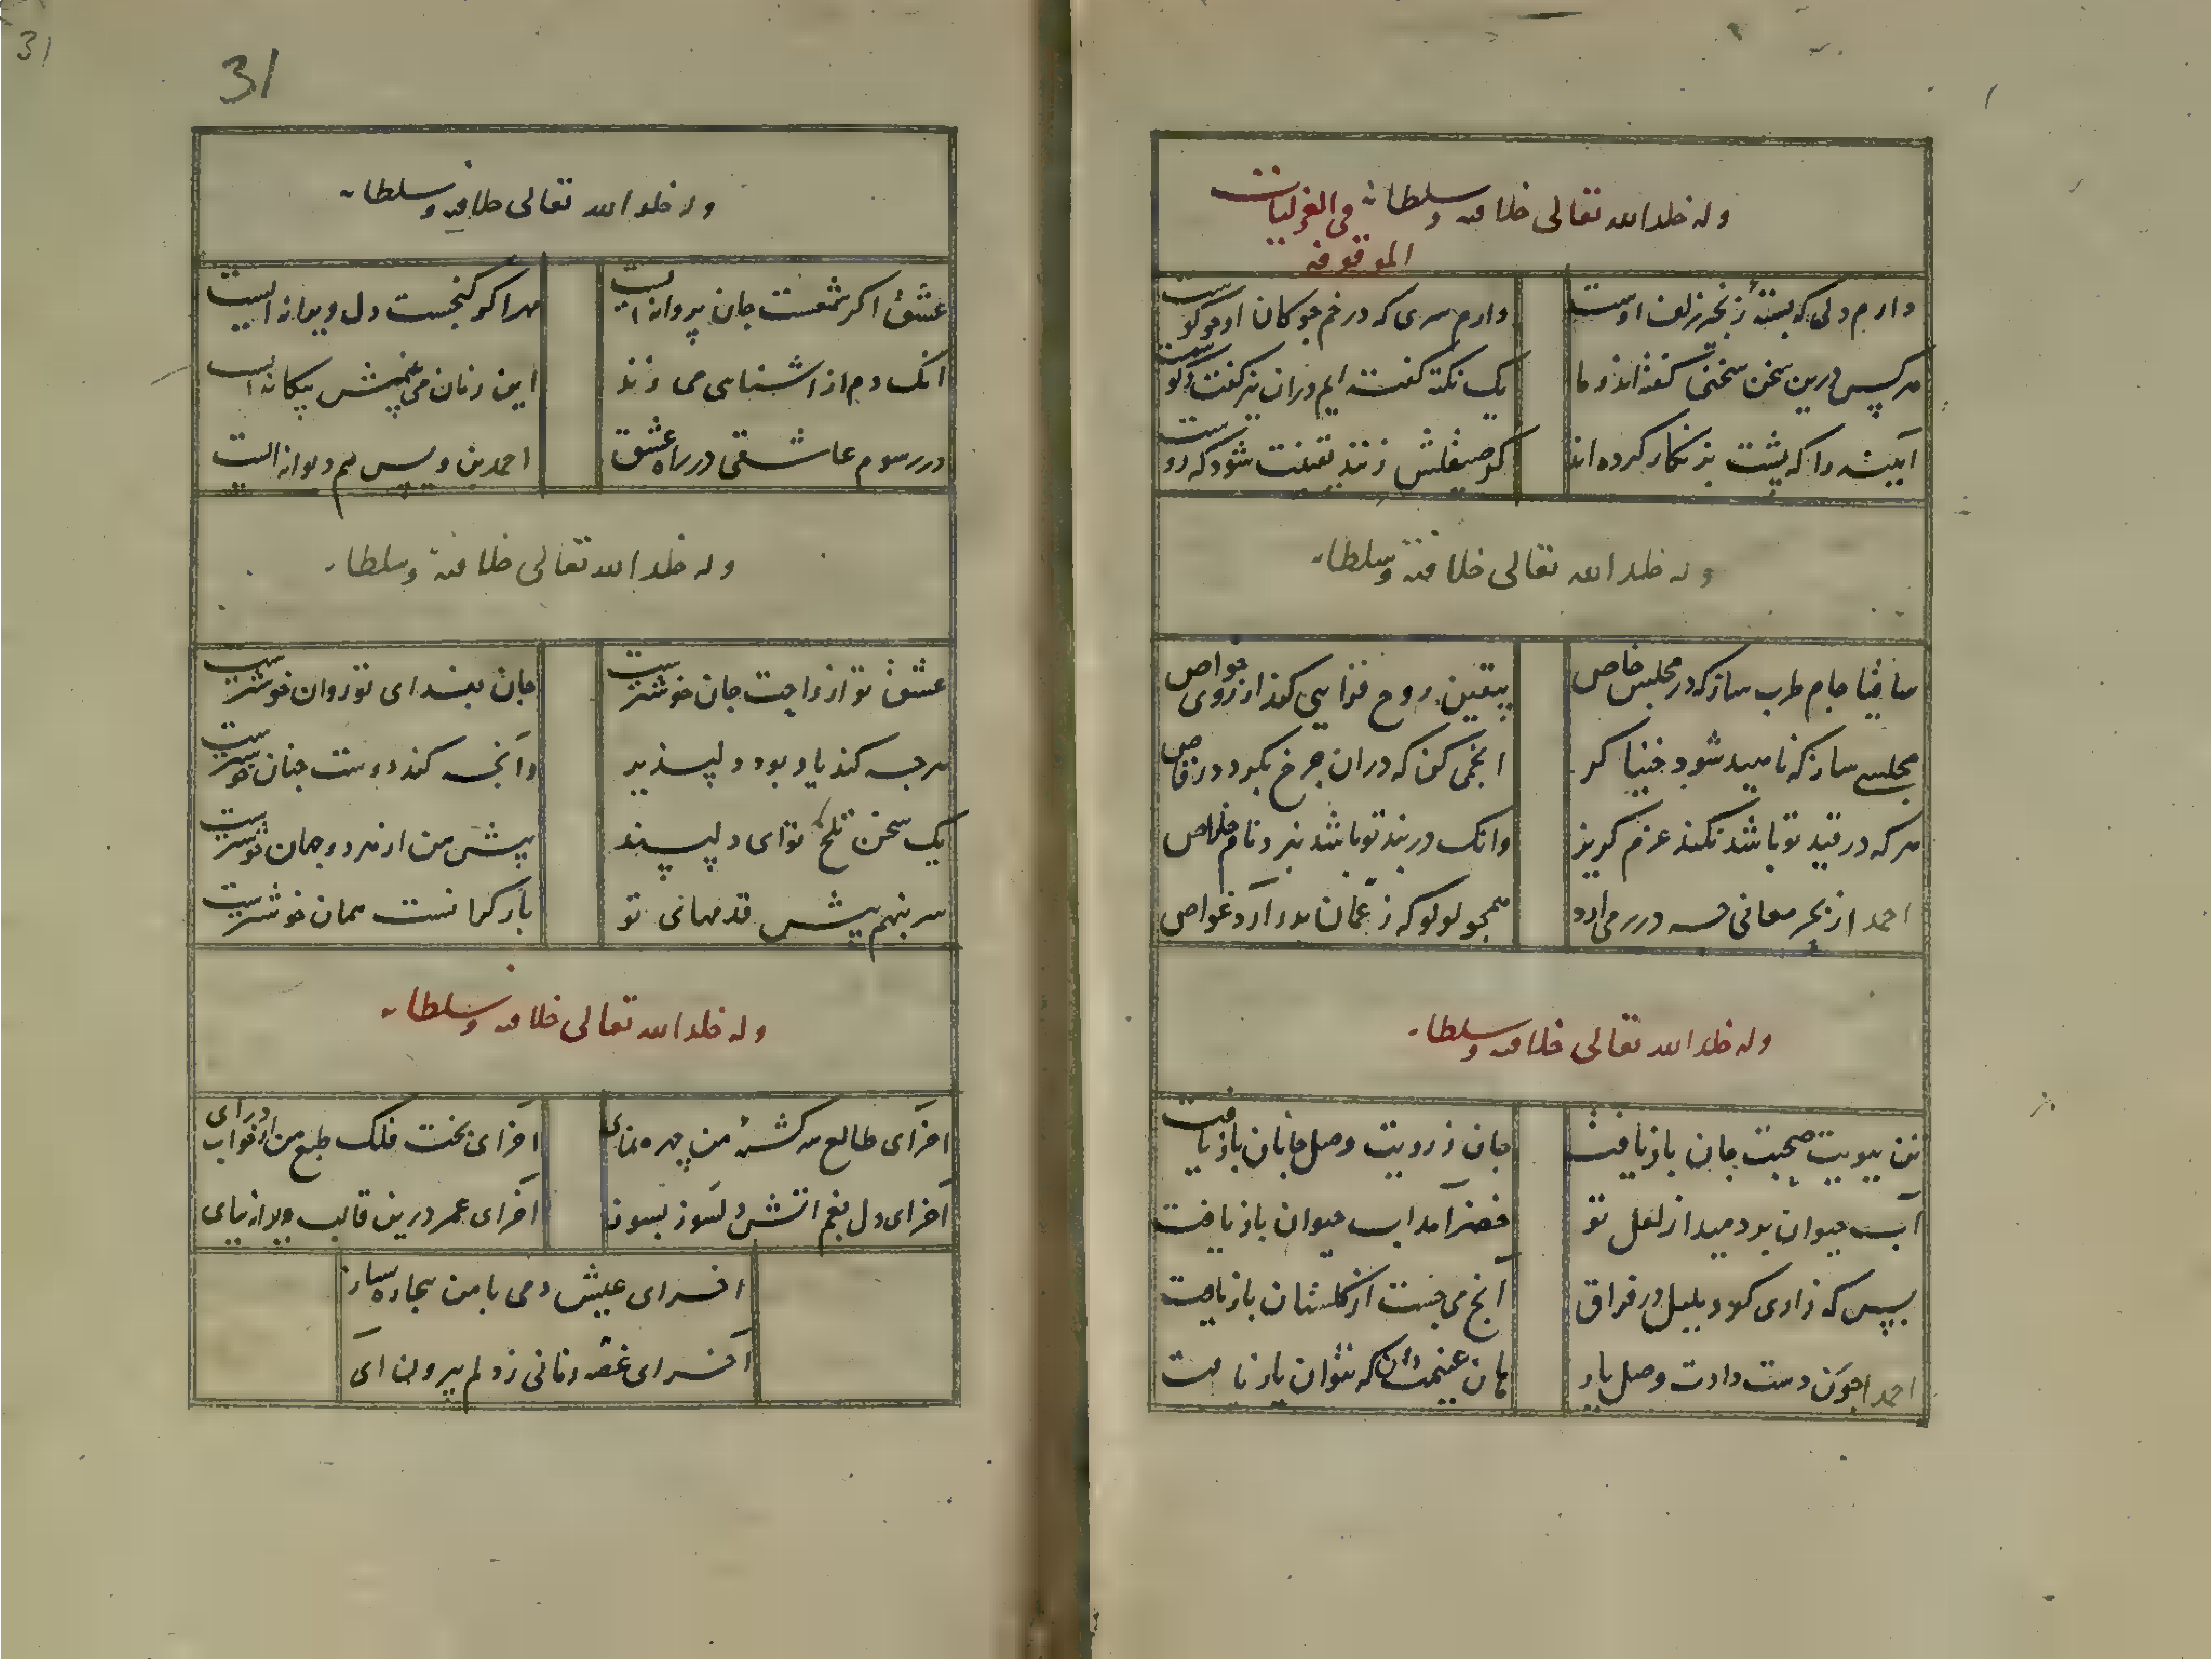 وله خلد الله تعالی خلافته وسلطانه فی الغزلیات
الموقوفة
دارم دلی که بستهٔ زنجیر زلف اوست
دارم سری که در خم چوکان او چو کوست
هر کس درین سخن سخنی کفته اند و ما
یک نکته کفته ایم دران نیز کفت
آیینه را که پشت بزنکار کرده اند
کر صیقلش زنند یقینت شود که روست
وله خلد الله تعالی خلافته وسلطانه
ساقیا جام طرب ساز که در مجلس خاص
بیقین روح فزایی کند از روی خواص
مجلسی ساز که ناهید شود خنیاکر
انجمی کن که دران چرخ بکردد رقاص
هر که در قید تو باشد نکند عزم کریز
وانک در بند تو باشد نبرد نام خلاص
احمد از بحر معانی درر می آرد
همچو لولو که ز عمان بدر آرد غواص
وله خلد الله تعالی خلافته وسلطانه
تن ببویت صحبت جان باز یافت
جان ز رویت وصل جانان باز یافت
آب حیوان بردمید از لعل تو
خضر آمد آب حیوان باز یافت
بسپس که زاری کرد بلبل در فراق
آنچ می جست از کلستان باز یافت
احمد اچون دست دادت وصل یار
هان غنیمت دان که نتوان باز یافت
31
31
وله خلد الله تعالی خلافته وسلطانه
عشق اکر شمعست جان پروانه ایست
مهر اکر کنجست دل ویرانه ایست
انک دم از اشنایی می زند
این زمان می بینمش بیکانه ایست
در رسوم عاشقی در راه عشق
احمد بن ویس هم دیوانه ایست
وله خلد الله تعالی خلافته وسلطانه
عشق تو از راحت جان خوشترست
جان بفدای تو روان خوشترست
هرچه کند یار بود دلپذیر
وآنچه کند دوست چنان خوشترست
یک سخن تلخ تو ای دلپسند
پیش من از هر دو جهان خوشترست
سر بنهم پیش قدمهای تو
بار کرانست همان خوشترست
وله خلد الله تعالی خلافته وسلطانه
اخر ای طالع سرکشتهٔ من چهره نمای
اخر ای بخت فلک طبع من از خواب درای
آخر ای دل بغم اتش دلسوز بسوز
آخر ای عمر درین قالب ویرانه بپای
اخر ای عیش دمی با من بیچاره بساز
آخر ای غصه زمانی ز دلم بیرون آی